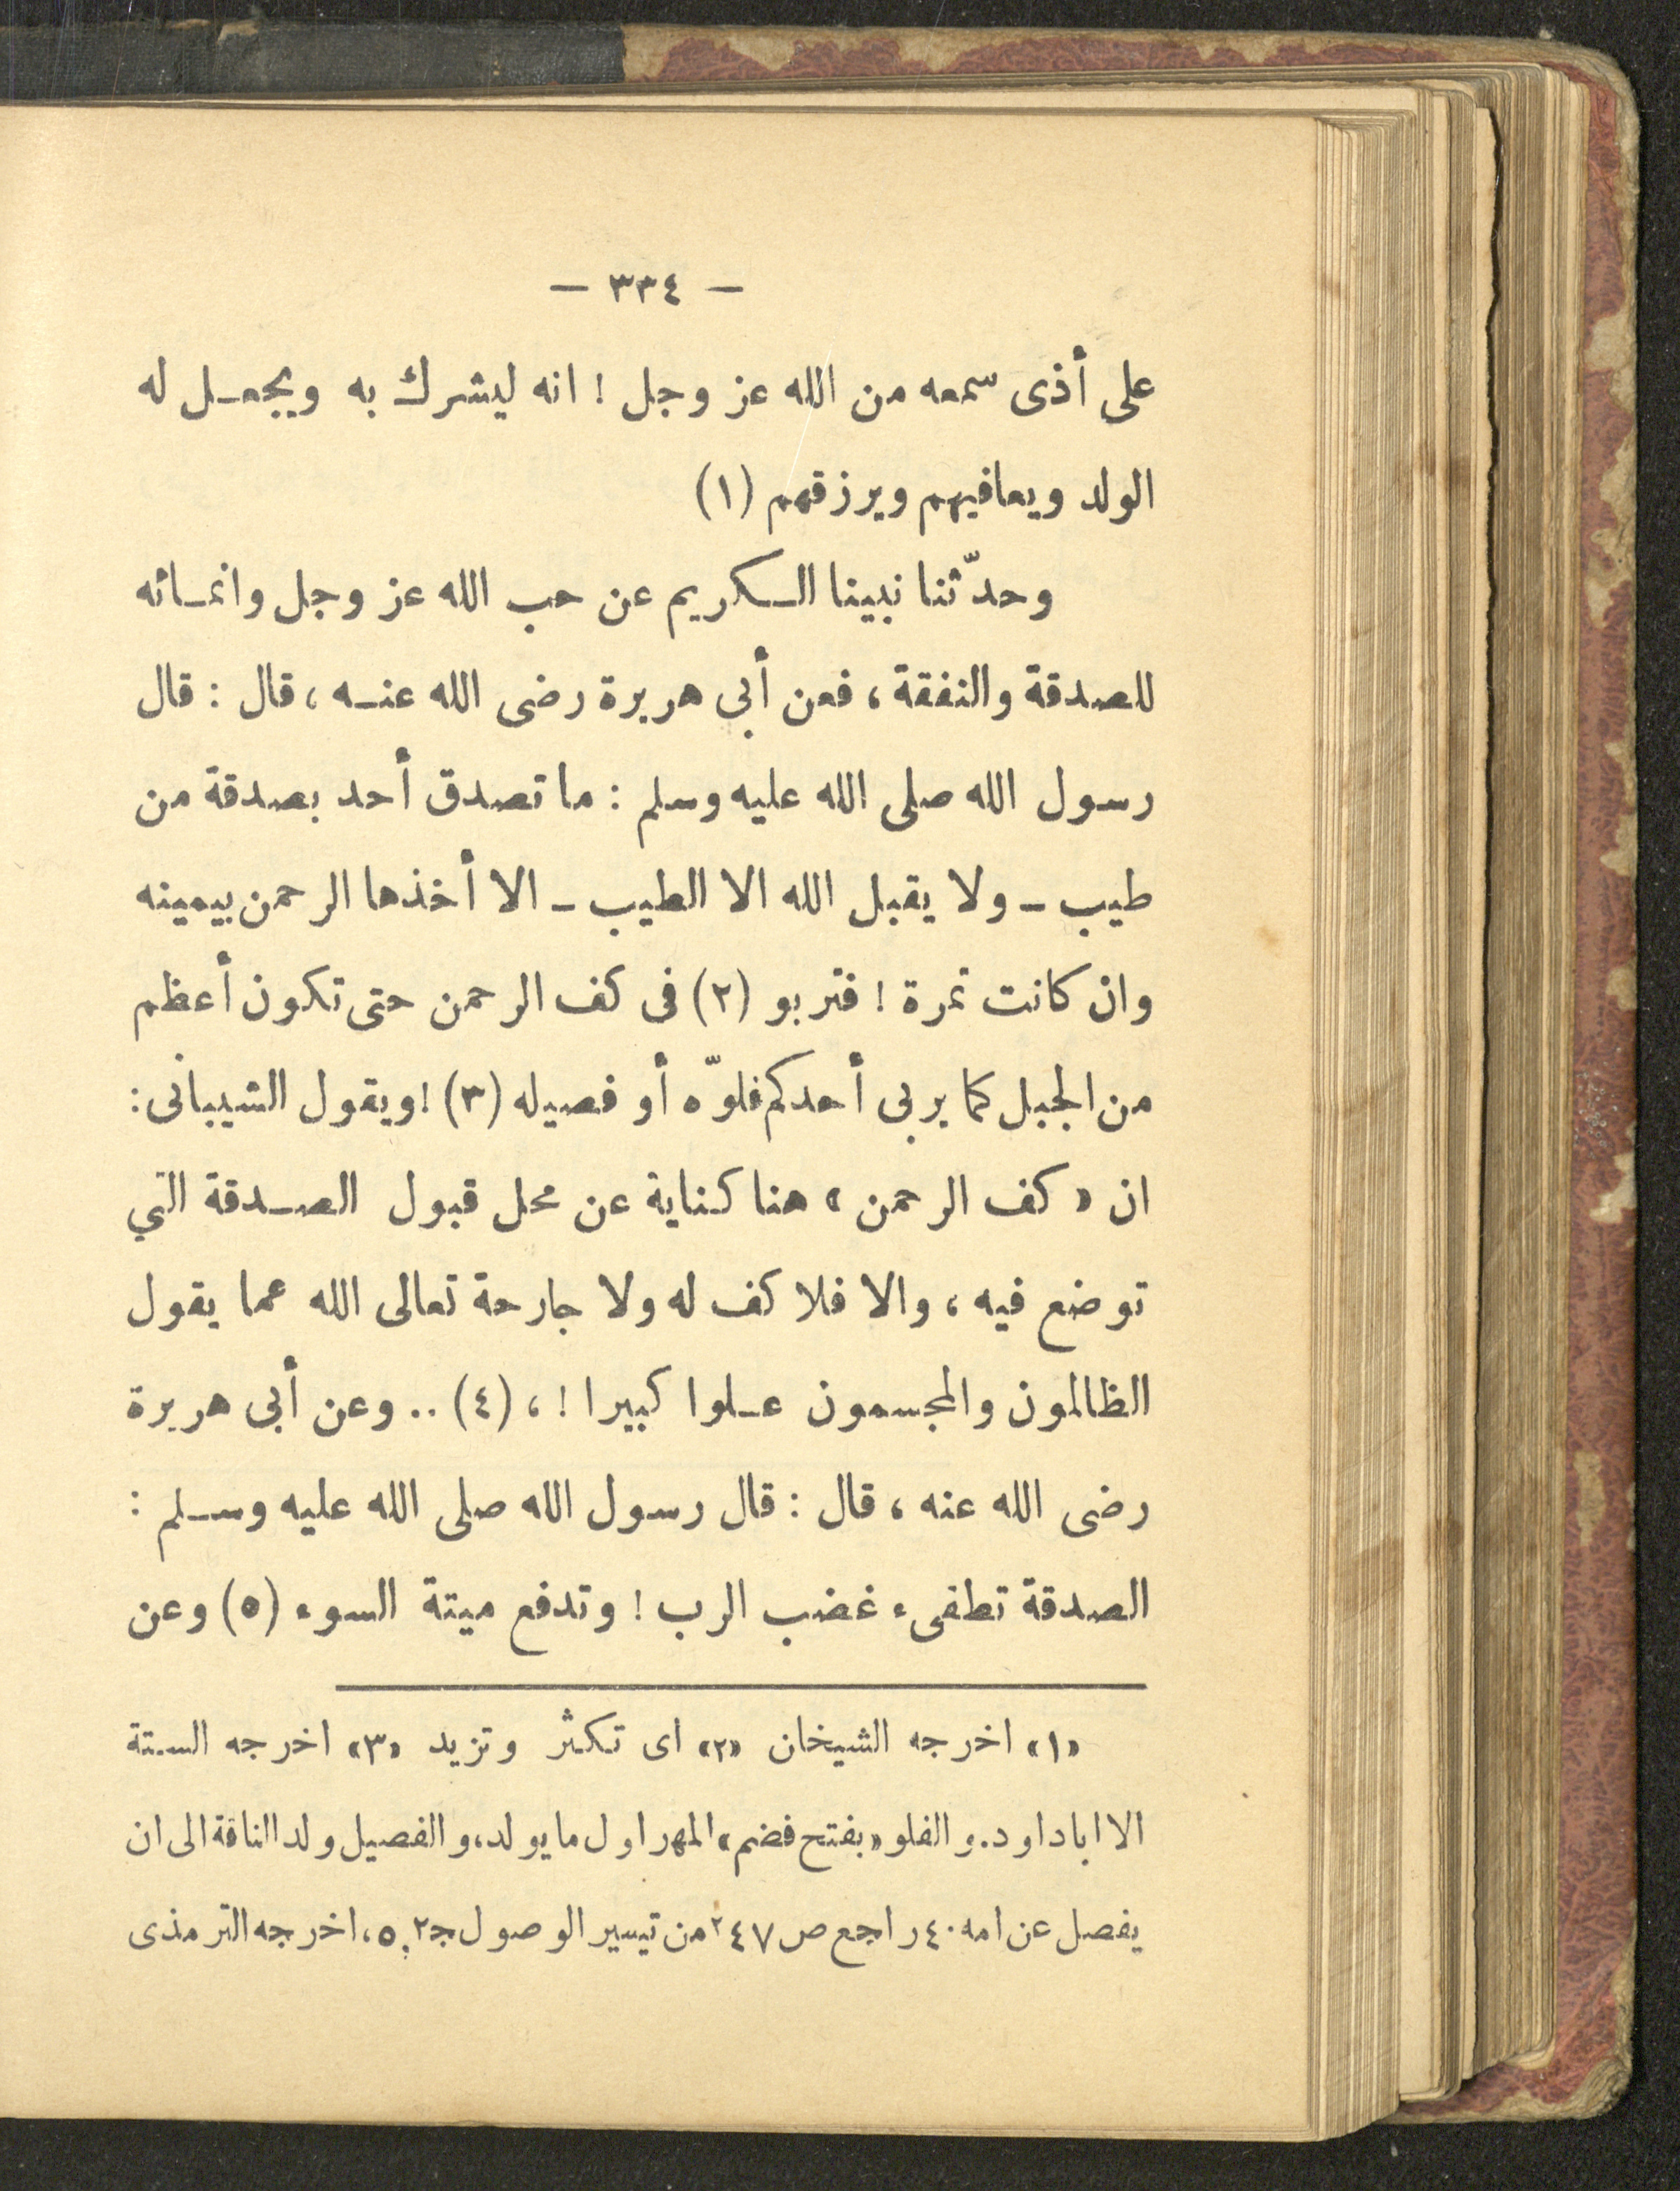 — ٣٣٤ —
على أذى سمعه من الله عز وجل ! انه ليشرك به ويجعل له
الولد ويعافيهم ويرزقهم (١)
وحدّثنا نبينا الكريم عن حب الله عز وجل وانمائه
للصدقة والنفقة ، فعن أبي هريرة رضى الله عنه ، قال : قال
رسول الله صلى الله عليه وسلم : ما تصدق أحد بصدقة من
طيب – ولا يقبل الله الا الطيب – الا أخذها الرحمن بيمينه
وان كانت تمرة ! فتربو (٢) فى كف الرحمن حتى تكون أعظم
من الجبل كما يربى أحدكم فلوّه أو فصيله (٣) ! ويقول الشيبانى :
ان « كف الرحمن » هنا كناية عن محل قبول الصدقة التي
توضع فيه ، والا فلا كف له ولا جارحة تعالى الله عما يقول
الظالمون والمجسمون علوا كبيرا ! ، (٤) .. وعن أبى هريرة
رضى الله عنه ، قال : قال رسول الله صلى الله عليه وسلم :
الصدقة تطفىء غضب الرب ! وتدفع ميتة السوء (٥) وعن
«١» اخرجه الشيخان «٢» اى تكثر وتزيد «٣» اخرجه الستة
الا اباداود. والفلو «بفتح فضم» المهر اول مايولد، والفصيل ولد الناقة الى ان
يفصل عن امه ٤٠ راجع ص ٢٤٧ من تيسير الوصول ج٢ .٥، اخرجه الترمذى